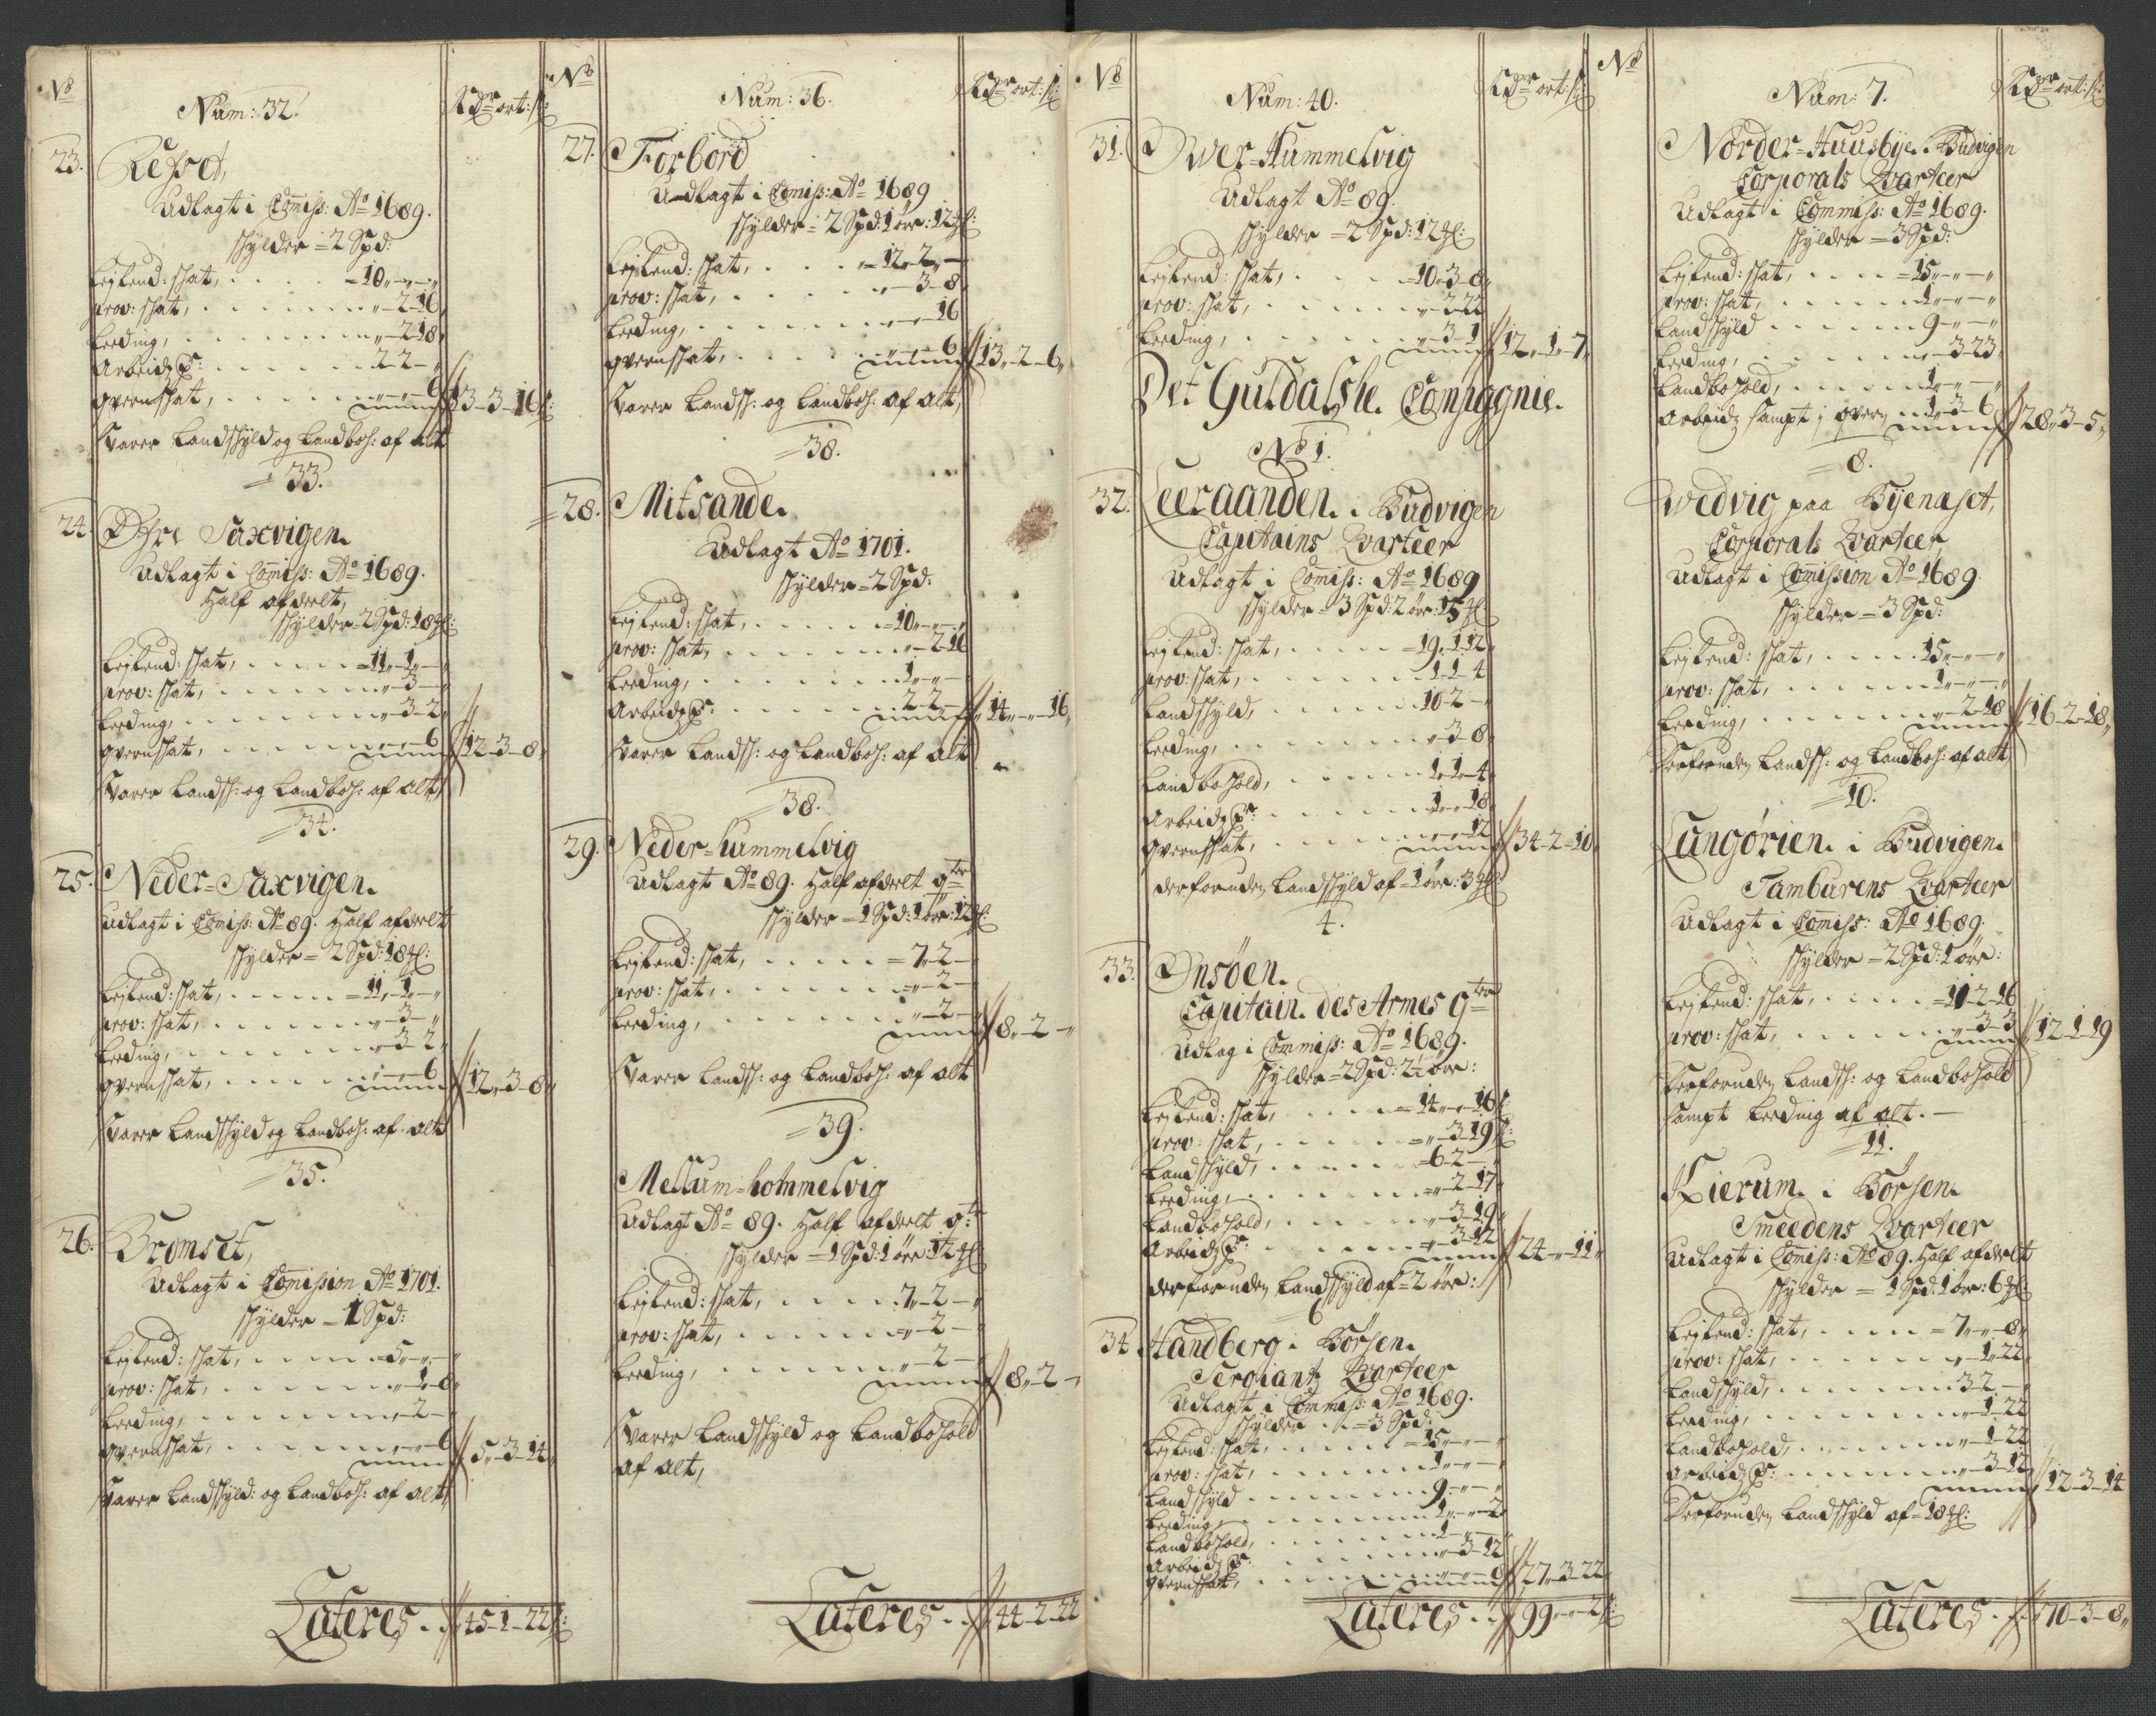 No
Num: 32.
Rdr ort: s:
23.
Refset,
Udlagt i Comiss: Ao 1689.
schylder = 2 Spd:
Lejlend: schat, . . . . = 10,,-,,-,,
prov: schat, . . . . ,,-2-16
Leeding, . . . . ,,-2-18
Arbeidz P: . . . . 2-2-,,
qvernschat, . . . . ,,-,,-6
13-3-16 s:
Svarer Landschyld og Landboh: af alt
33.
24.
Øfre Saxvigen.
Udlagt i Comiss: Ao 1689.
Half afdeelt,
schylder = 2 Spd: 18 :
Lejlend: schat, . . . . = 11,,-1,,-,,
prov: schat, . . . . ,,-3-,,
Leeding, . . . . ,,-3-2,,
qvernschat, . . . . ,,-,,-6
12-3-8,,
Svarer Landsch: og Landboh: af alt,
34.
25.
Neder-Saxvigen.
Udlagt i Comiss: Ao 89. Half afdeelt
schylder = 2 Spd: 18 :
Lejlend: schat, . . . . = 11,,-1,,-,,
prov: schat, . . . . ,,-3-,,
Leeding, . . . . ,,-3-2,,
qvernschat, . . . . ,,-,,-6
12,,-3-8,,
Svarer Landschyld og Landboh: af alt
35.
26.
Bromset,
Udlagt i Comission Ao 1701.
schylder = 1 Spd:
Lejlend: schat, . . . . = 5,,-,,-,,
prov: schat, . . . . ,,-1-8,,
Leeding, . . . . ,,-2-,,
qvernschat, . . . . ,,-,,-6
5,,-3-14,,
Svarer Landschyld: og Landboh: af alt,
Lateres . 45-1-22 s:
No
Num: 36.
Rdr ort: s:
27.
Forbord
Udlagt i Comiss: Ao 1689
schylder = 2 Spd: 1 øre: 12 :
Lejlend: schat, . . . . = 12,,-2,,-
prov: schat, . . . . ,,-3-8,,
Leeding, . . . . ,,-,,-16
qvernschat, . . . . ,,-,,-6
13,,-2-6,,
Svarer Landsch: og Landboh: af alt,
38.
28.
Mitsande.
Udlagt Ao 1701.
schylder = 2 Spd:
Lejlend: schat, . . . . = 10,,-,,-,,
prov: schat, . . . . ,,-2-16
Leeding, . . . . 1,,-,,-
Arbeidz P: . . . . 2-2,,-
14,,-,,-16,,
Svarer Landsch: og Landboh: af alt
38.
29.
Neder-hummelvig
Udlagt Ao 89. Half afdeelt qter
schylder = 1 Spd: 1 øre: 12 :
Lejlend: schat, . . . . = 7,,-2-
prov: schat, . . . . ,,-2-
Leeding, . . . . ,,-2-
8,,-2-,,
Svarer Landsch: og Landboh: af alt
39.
Mellum-hommelvig
Udlagt Ao 89. Half afdeelt qt:
schylder = 1 Spd: 1 øre: 12
Lejlend: schat, . . . . 7,,-2-,,
prov: schat, . . . . ,,-2-,,
Leeding, . . . . ,,-2-
8,,-2-,,
Svarer Landschyld og Landbohold
af alt,
Lateres . 44-2-22
No
Num: 40.
Rdr ort: s:
31.
Øwer-Hummelvig
Udlagt Ao 89.
schylder = 2 Spd: 12 :
Lejlend: schat, . . . . = 10,,-3-8,,
prov: schat, . . . . ,,-2-22
Leeding, . . . . ,,-3-1
12,,-1,,-7,,
Det Guldalske Compagnie.
No 1.
32.
Leeraanden i Budvigen
Capitains Qvarteer
Udlagt i Comiss: Ao 1689
schylder = 3 Spd: 2 øre: 15 :
Lejlend: schat, . . . . = 19,,-1-12,,
prov: schat, . . . . 1-1-4
Landschyld, . . . . 10-2-,,
Leeding, . . . . ,,-3-8,,
Landbohold, . . . . 1,,-1-4,,
Arbeidz P: . . . . 1,,-,,-18,,
qvernschat, . . . . ,,-,,-12
34-2-10,,
derforuden Landschyld af = 1 øre: 3
4.
33.
Onsøen.
Capitain des Armes qter
Udlag i Commiss: Ao 1689.
schylder = 2 Spd: 2½ øre:
Lejlend: schat, . . . . = 14,,-,,-16 s:
prov: schat, . . . . = ,,-3-19 s:
Landschyld, . . . . = 6-2-,,
Leeding, . . . . ,,-2-17,,
Landbohold, . . . . ,,-3-19,,
Arbeidz P: . . . . ,,-3-12
24-,,-11,,
derforuden Landschyld af = 2 øre:
6
34.
Handberg i Børsen.
Sergiantz Qvarteer
Udlagt i Commiss: Ao 1689.
schylder . . = 3 Spd:
Lejlend: schat, . . . . = 15,,-,,-,,
prov: schat, . . . . 1,,-,,-,,
Landschyld . . . . 9,,-,,-,,
Leeding, . . . . 1,,-,,-2,,
Landbohold, . . . . 1,,-,,-,,
Arbeidz P: . . . . ,,-3-12
qvernschat, . . . . ,,-,,-6
27,,-3-22,,
Lateres . 99-,,-2 s:
No
Num: 7.
Rdr ort: s:
Nørder-Huusbye. i Budvigen
Corporals Qvarteer
Udlagt i Commiss: Ao 1689.
schylder = 3 Spd:
Lejlend: schat, . . . . = 15,,-,,-,,
prov: schat, . . . . 1,,-,,-,,
Landschyld . . . . 9-,,-,,
Leeding, . . . . ,,-3-23,,
Landbohold, . . . . 1,,-,,-,,
Arbeidz sampt qvern . . 1,,-3-6
28,,-3-5,,
8.
Wedvig paa Byenæset,
Corporals Qvarteer
Udlagt i Comission Ao 1689.
schylder = 3 Spd:
Lejlend: schat, . . . . 15,,-,,-,,
prov: schat, . . . . 1,,-,,-,,
Leeding, . . . . ,,-2-18
16-2-18,,
Derforuden Landsch: og Landboh: af alt
10.
Langørien. i Budvigen.
Tamburens Qvarteer
Udlagt i Comiss: Ao 1689.
schylder = 2 Spd: 1 øre:
Lejlend: schat, . . . . = 11-2-16
prov: schat, . . . . ,,-3-3
12-1-19
Derforuden Landsch: og Landbohold
sampt Leeding af alt. -
11.
Kierum i Børsen.
Smeedens Qvarteer
Udlagt i Comiss: Ao 89. Half afdeelt
schylder = 1 Spd: 1 øre: 6 :
Lejlend: schat, . . . . = 7,,-,,-8,,
prov: schat, . . . . ,,-1-22,,
Landschyld, . . . . 3-2,,-
Leeding, . . . . ,,-1-22
Landbohold, . . . . ,,-1-22
Arbeidz P: . . . . ,,-3-12
12-3-14
Derforuden Landschyld af = 18 :
Lateres . 70-3-8,,